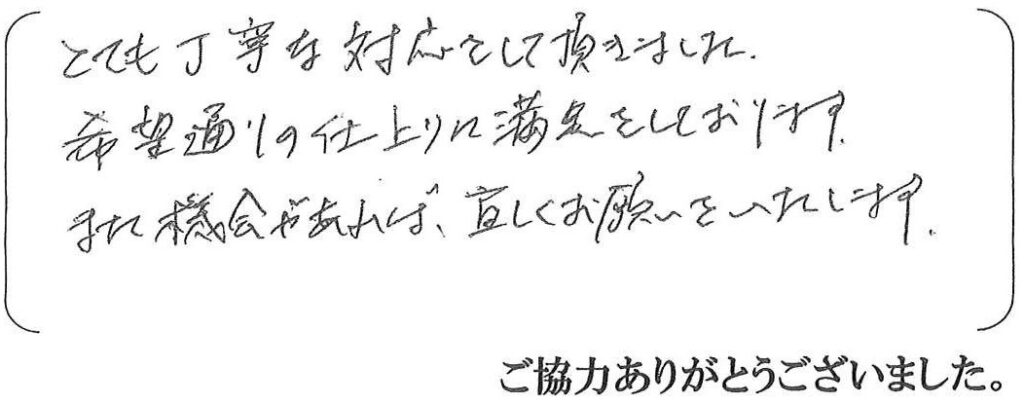 とても丁寧な対応をして頂きました.
希望通りの仕上りに満足をしております.
また機会があれば、宜しくお願いをいたします.
ご協力ありがとうございました。